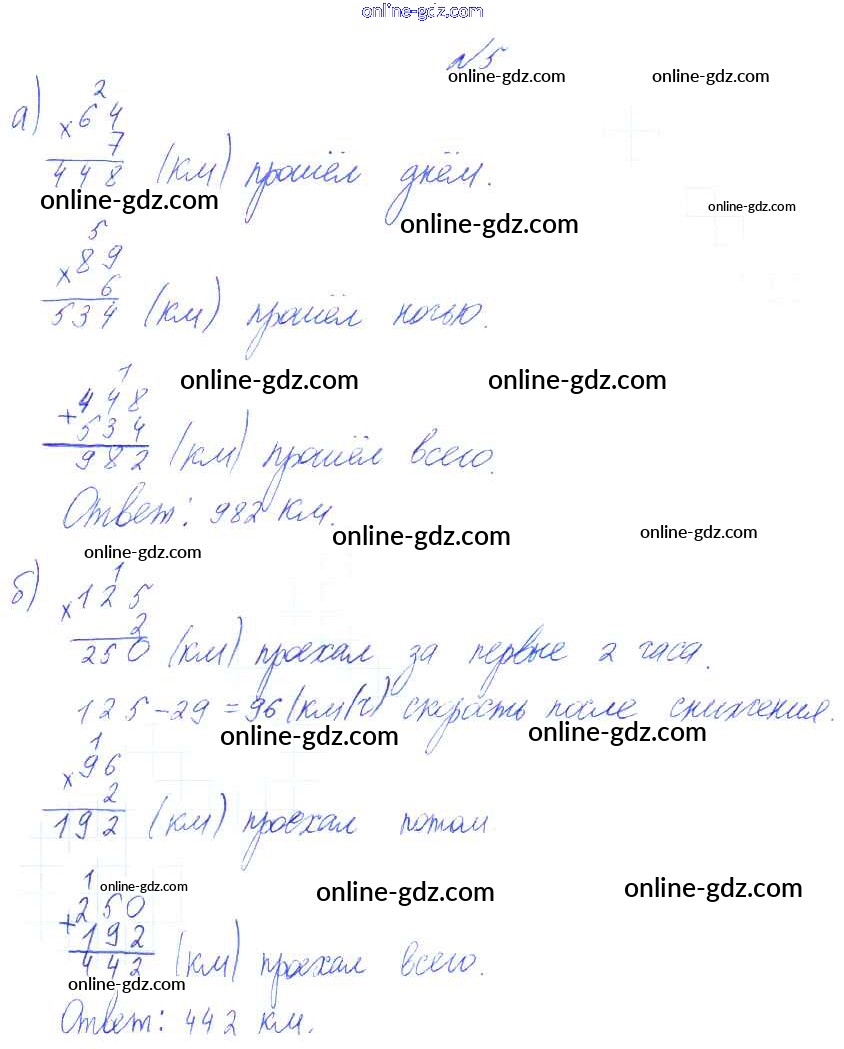 online-gdz.com
№5
online-gdz.com online-gdz.com
а) 2
× 64
7
448 (км) прошёл днём.
online-gdz.com online-gdz.com online-gdz.com
5
× 89
6
534 (км) прошёл ночью.
online-gdz.com online-gdz.com
1
+ 448
534
982 (км) прошёл всего.
Ответ: 982 км.
online-gdz.com online-gdz.com
online-gdz.com
б) 1
× 125
2
250 (км) проехал за первые 2 часа.
125 - 29 = 96 (км/ч) скорость после снижения.
online-gdz.com online-gdz.com
1
× 96
2
192 (км) проехал потом
online-gdz.com online-gdz.com online-gdz.com
1
+ 250
192
442 (км) проехал всего.
online-gdz.com online-gdz.com
Ответ: 442 км.